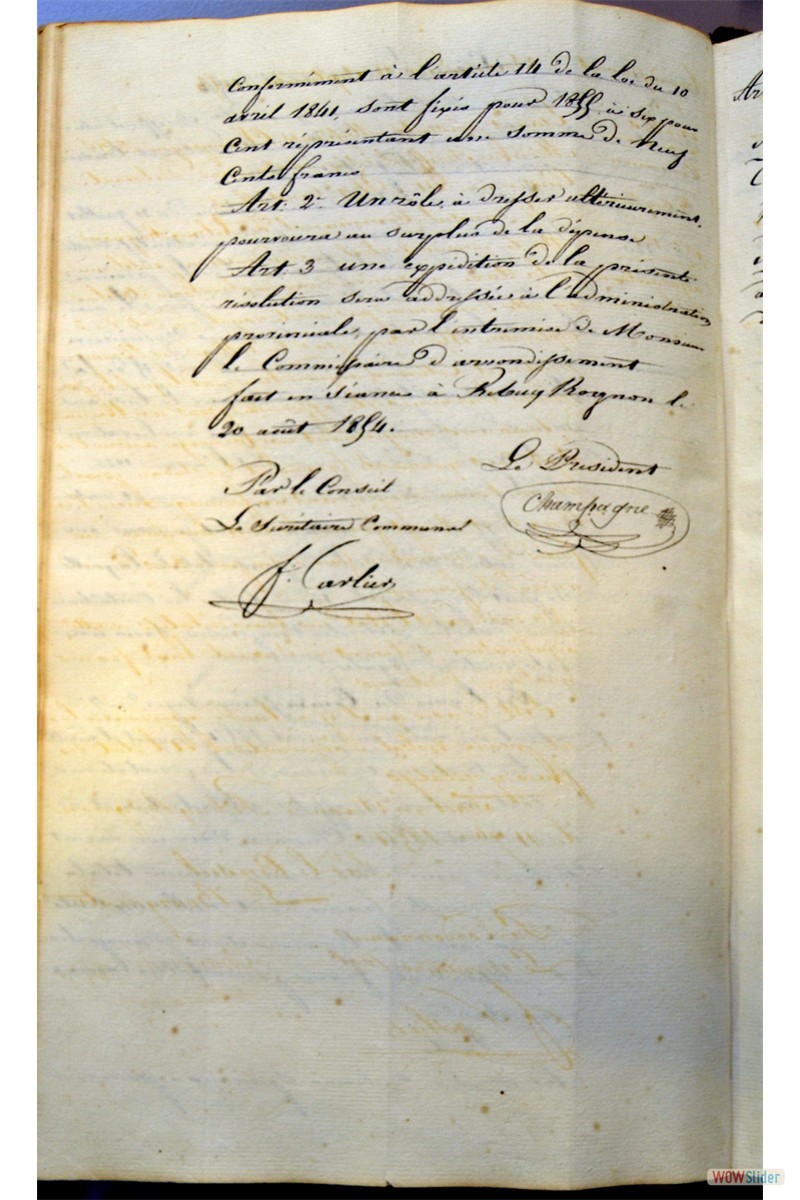 Conformément à l'article 14 de la loi du 10
avril 1841, sont fixés pour 1855, à six pour
Cent représentant une somme de Neuf
Cents francs
Art. 2e Un rôle, à dresser ultérieurement,
pourvoiera au surplus de la dépense
Art. 3 une expédition de la présente
résolution sera addressée à l'administration
provinciale, par l'intremise de Monsieur
le Commissaire d'arrondissement
fait en séance à Rognon le
20 août 1854.
Le Président
Champagne
Par le Conseil
Le Secrétaire Communal
F. Carlier
WOWSlider